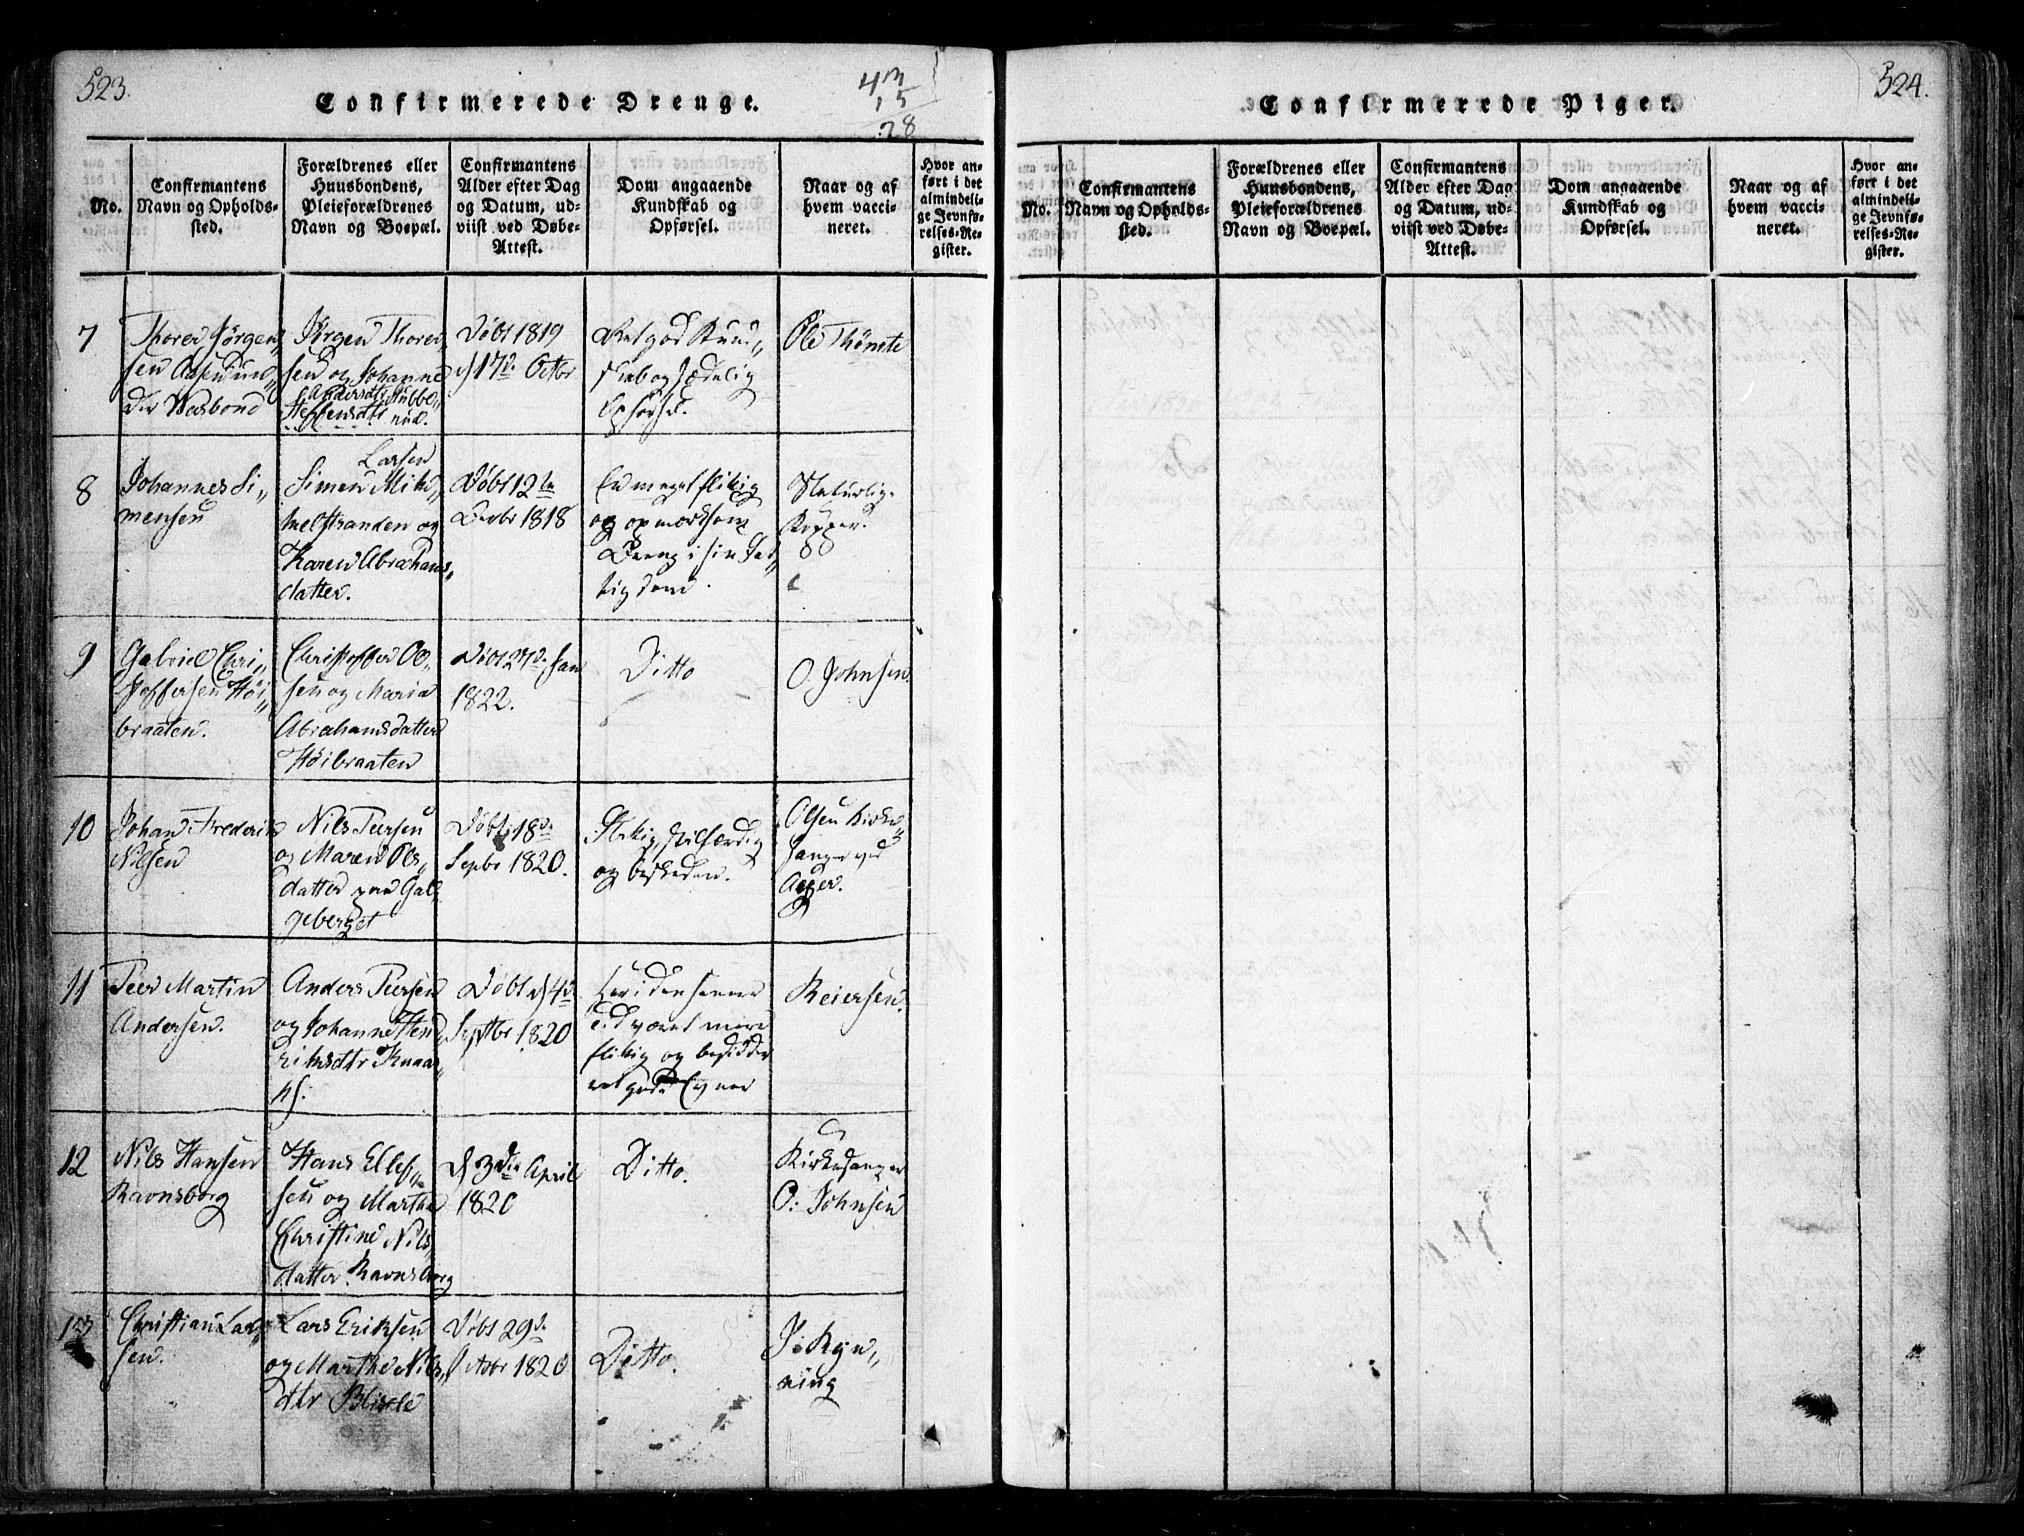 523.
Confirmerede Drenge.
4 m
15
28
No.
Confirmantens
Navn og Opholds-
sted.
Forældrenes eller
Huusbondens,
Pleieforældrenes
Navn og Boepæl.
Confirmantens
Alder efter Dag
og Datum, ud-
viist ved Døbe-
Attest.
Dom angaaende
Kundskab og
Opførsel.
Naar og af
hvem vacci-
neret.
Hvor an-
ført i det
almindeli-
ge Jevnfø-
relses-Re-
gister.
7
Thorer Jørgen„
sen Aasen un„
der Wesbond
Jørgen Thorer„
sen og Johanne
Andersdtr Stubbe„
Steffensdtr rud.
Døbt 1819
d 17d Octbr
Ret god Kund„
skab og sædelig
Opførsel.
Ole Thomte
8
Johannes Si„
mensen
Larsen
Simen Mik„
helstranden og
Karen Abrahams„
datter.
Døbt 12te
Decbr 1818
En meget flitig
og opmærksom
Dreng i sin Fat„
tigdom.
Naturlige
Kopper.
9
Gabriel Chri„
stoffersen Høi„
braaten.
Christoffer Ol„
sen og Maria
Abrahamsdatter
Høibraaten
Døbt 27d Jan
1822.
Ditto
O. Johnsen.
10
Johan Frederik
Nilsen
Nils Peersen
og Maren Ols„
datter paa Gal„
geberget
Døbt 18d
Septbr 1820.
Flitig, stilfærdig
og beskeden.
Olsen Kirke„
sanger ved
Ager.
11
Peer Martin
Andersen.
Anders Peersen
og Johanne Hen„
riksdtr Knaar„
Døbt d 4d
Septbr 1820
Har i den senere
Tid været mere
flitig og besidder
ret gode Evner
Reiersen.
12
Nils Hansen
Ravnsborg
Hans Ellef„
sen og Marthe
Christine Nils„
datter Ravnsborg
d 3die April
1820
Ditto.
Kirkesanger
O: Johnsen
13
Christian Lar„
sen.
Lars Eriksen
og Marthe Nils„
dtr
Døbt 29d
Octbr 1820
Ditto.
J. Ryn„
ning
524.
Confirmerede Piger.
No.
Confirmantens
Navn og Opholds-
sted.
Forældrenes eller
Huusbondens,
Pleieforældrenes
Navn og Boepæl.
Confirmantens
Alder efter Dag
og Datum, ud-
viist ved Døbe-
Attest.
Dom angaaende
Kundskab og
Opførsel.
Naar og af
hvem vacci-
neret.
Hvor an-
ført i det
almindeli-
ge Jevnfø-
relses-Re-
gister.